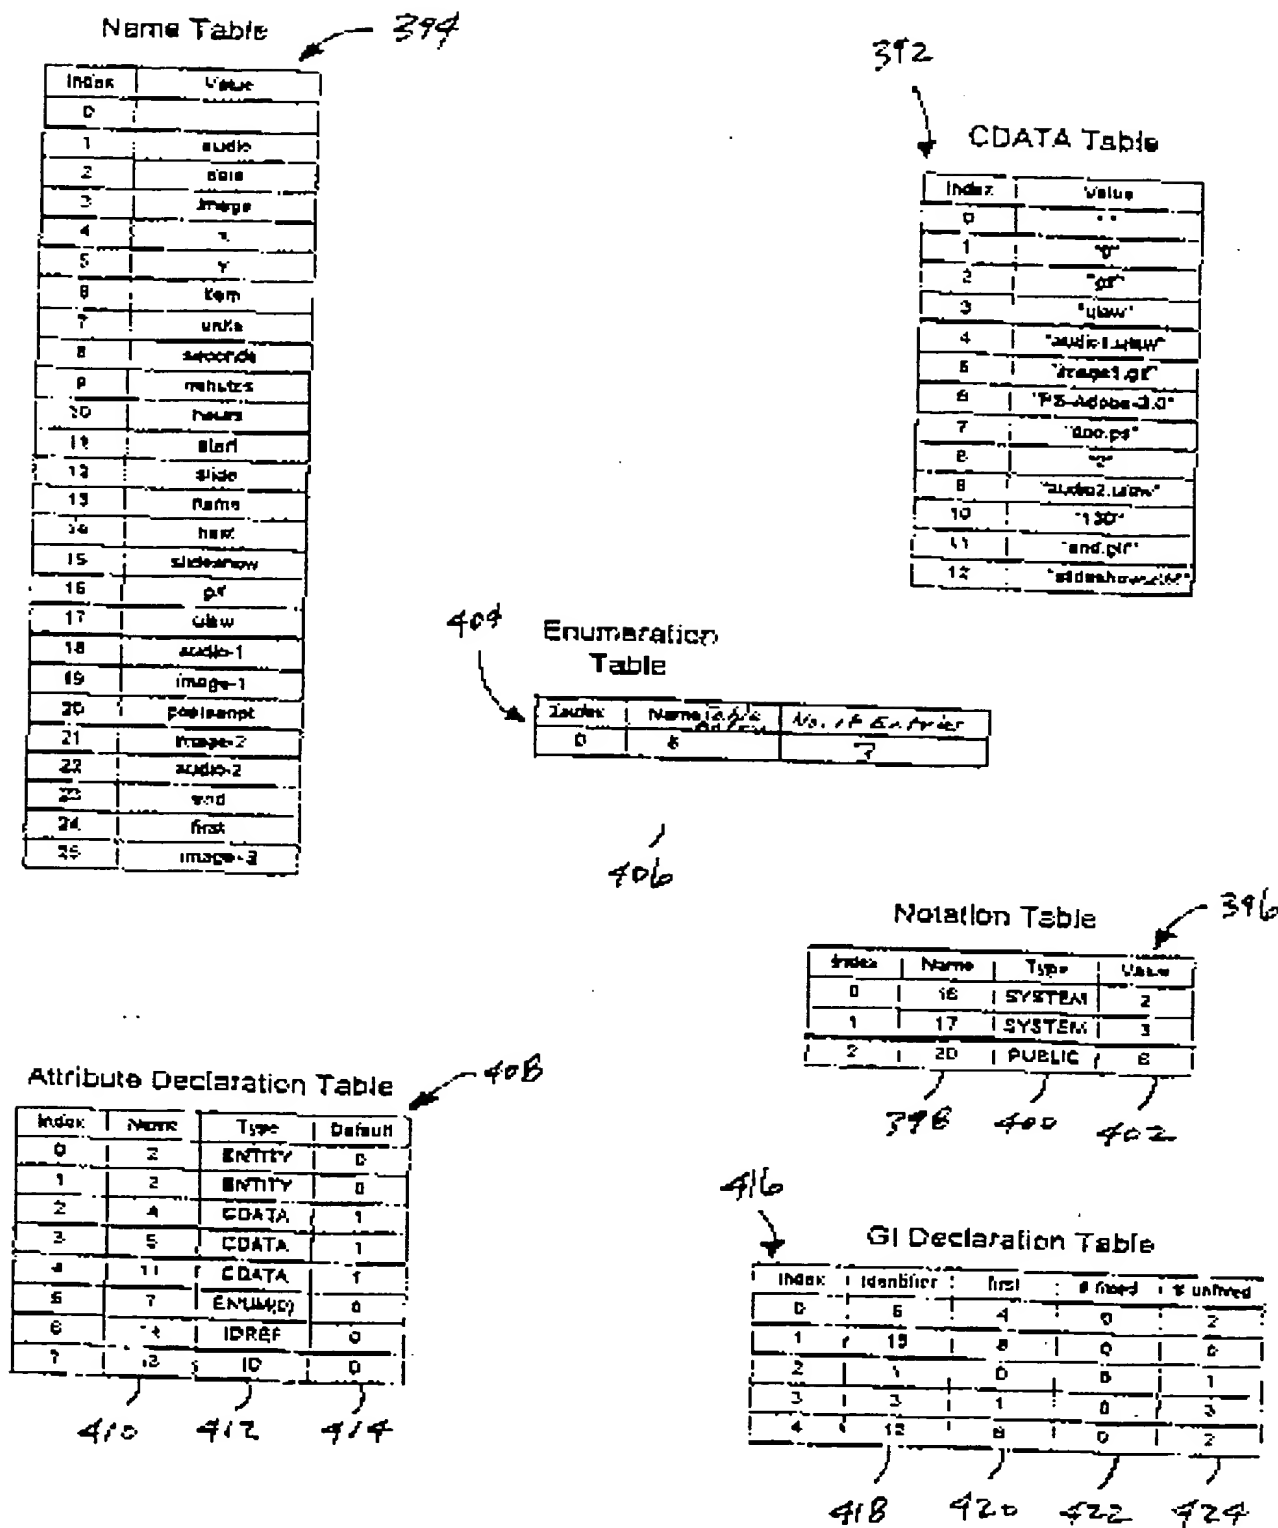 Name Table
394
Index Value
0
1 audio
2 data
3 image
4
5 y
6 item
7 units
8 seconds
9 minutes
10 hours
11 start
12 slide
13 name
14 next
15 slideshow
16 gif
17 ulaw
18 audio-1
19 image-1
20 postscript
21 image-2
22 audio-2
23 end
24 first
25 image-3
392
CDATA Table
Index Value
0 " "
1 "0"
2 "gif"
3 "ulaw"
4 "audio1.ulaw"
5 "image1.gif"
6 "PS-Adobe-3.0"
7 "doc.ps"
8
9 "audio2.ulaw"
10
11 "end.gif"
12
404
Enumeration
Table
Index Name Table No. of Entries
0
406
Notation Table
396
Index Name Type Value
0 16 SYSTEM 2
1 17 SYSTEM 3
2 20 PUBLIC 6
398 400 402
Attribute Declaration Table
408
Index Name Type Default
0 2 ENTITY 0
1 2 ENTITY 0
2 4 CDATA 1
3 5 CDATA 1
4 11 CDATA 1
5 7 ENUM(0) 0
6 14 IDREF 0
7 13 ID 0
410 412 414
416
GI Declaration Table
Index Identifier first # fixed # unfixed
0 6 4 0 2
1 15 0 0
2 1 0 0 1
3 3 1 0 3
4 12 6 0 2
418 420 422 424